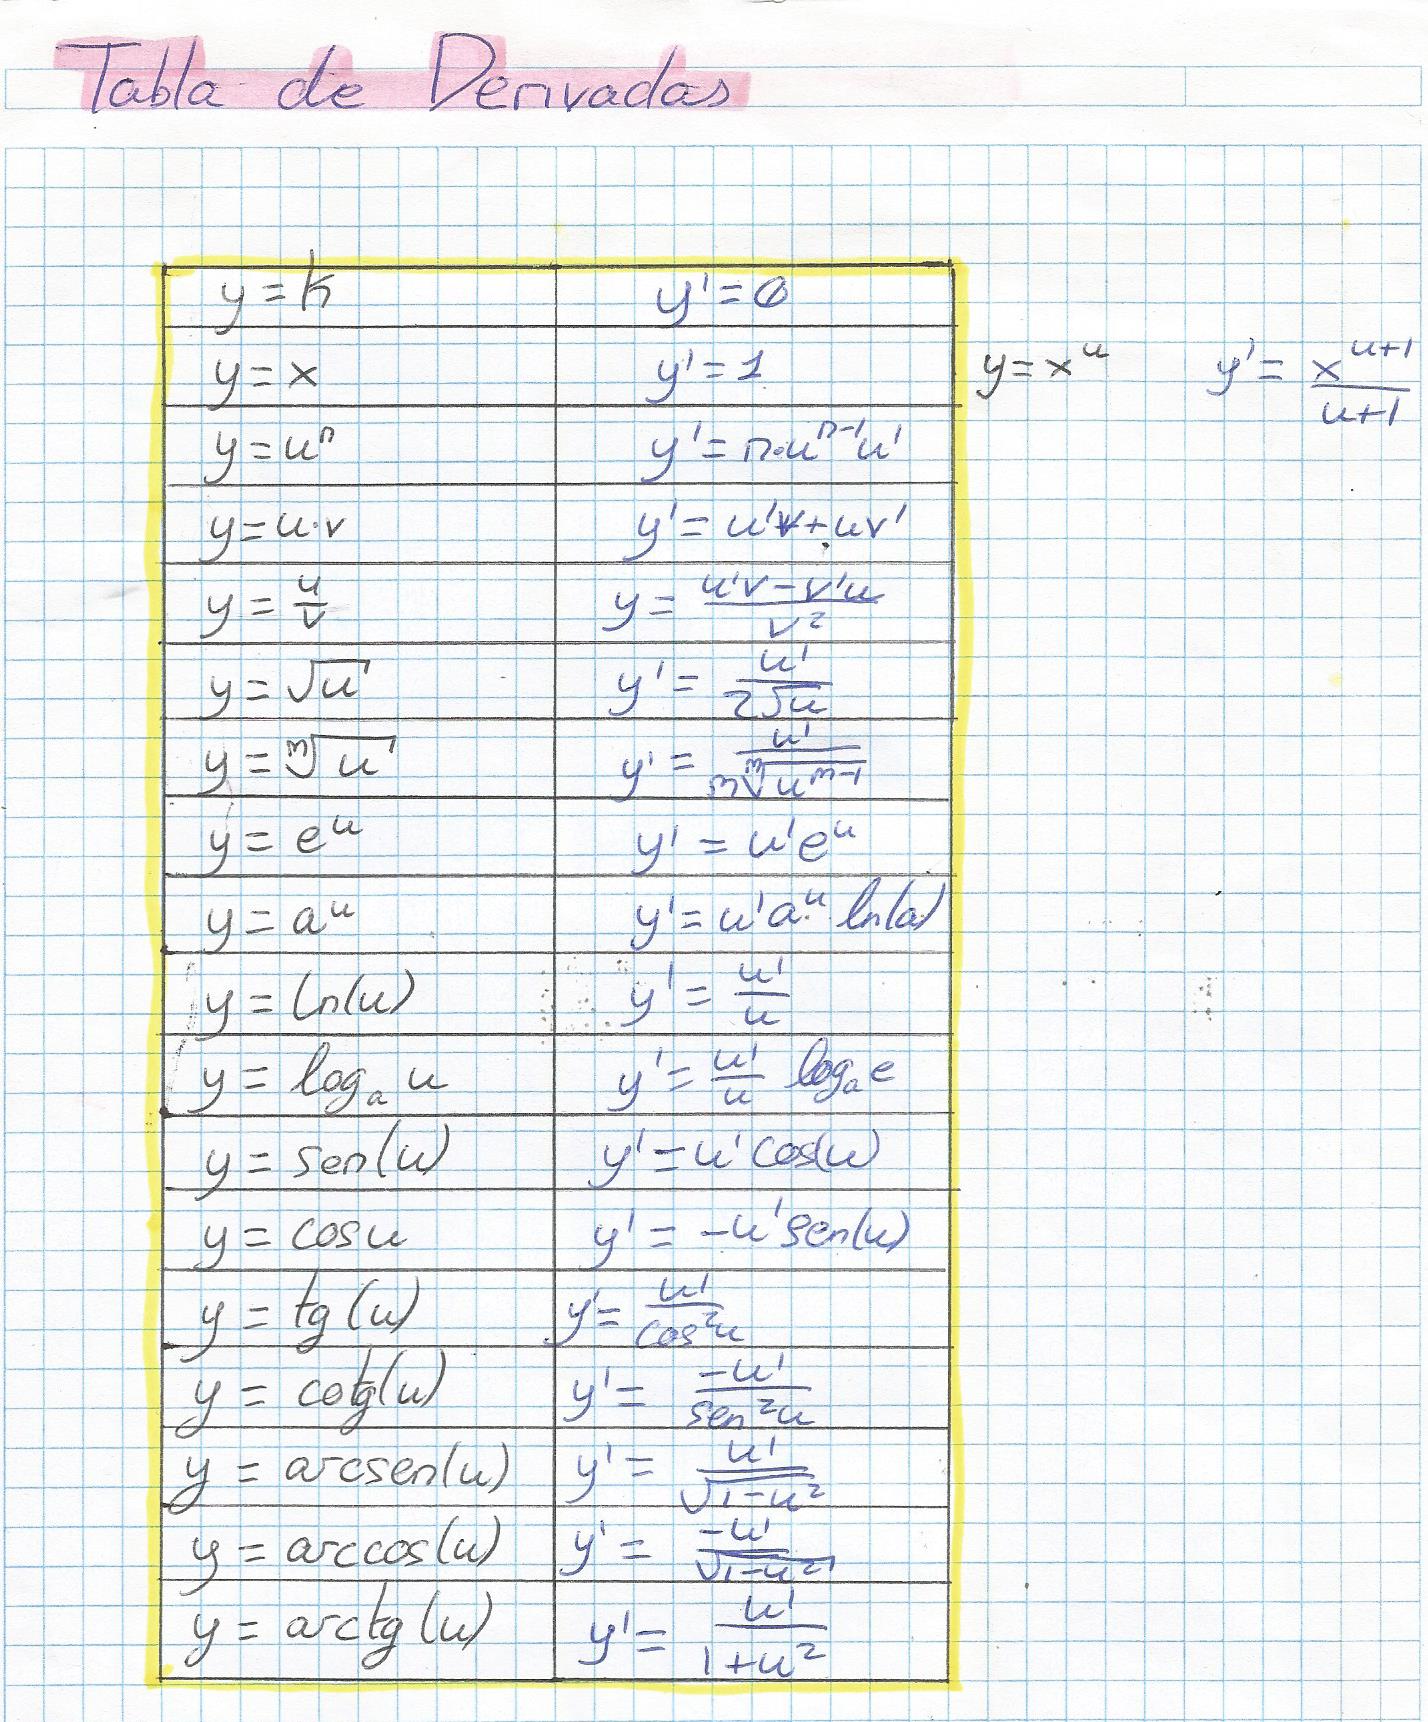 Tabla de Derivadas
y = k y' = 0
y = x y' = 1 y = x^u y' = x^(u+1)/(u+1)
y = u^n y' = n·u^(n-1) u'
y = u·v y' = u'v + uv'
y = u/v y = (u'v - v'u)/v²
y = √u y' = u'/(2√u)
y = ᵐ√u y' = u'/(m ᵐ√(u^(m-1)))
y = e^u y' = u'e^u
y = a^u y' = u'a^u ln(a)
y = ln(u) y' = u'/u
y = logₐ u y' = u'/u logₐ e
y = sen(u) y' = u' cos(u)
y = cos u y' = -u' sen(u)
y = tg(u) y' = u'/cos²u
y = cotg(u) y' = -u'/sen²u
y = arcsen(u) y' = u'/√(1-u²)
y = arccos(u) y' = -u'/√(1-u²)
y = arctg(u) y' = u'/(1+u²)